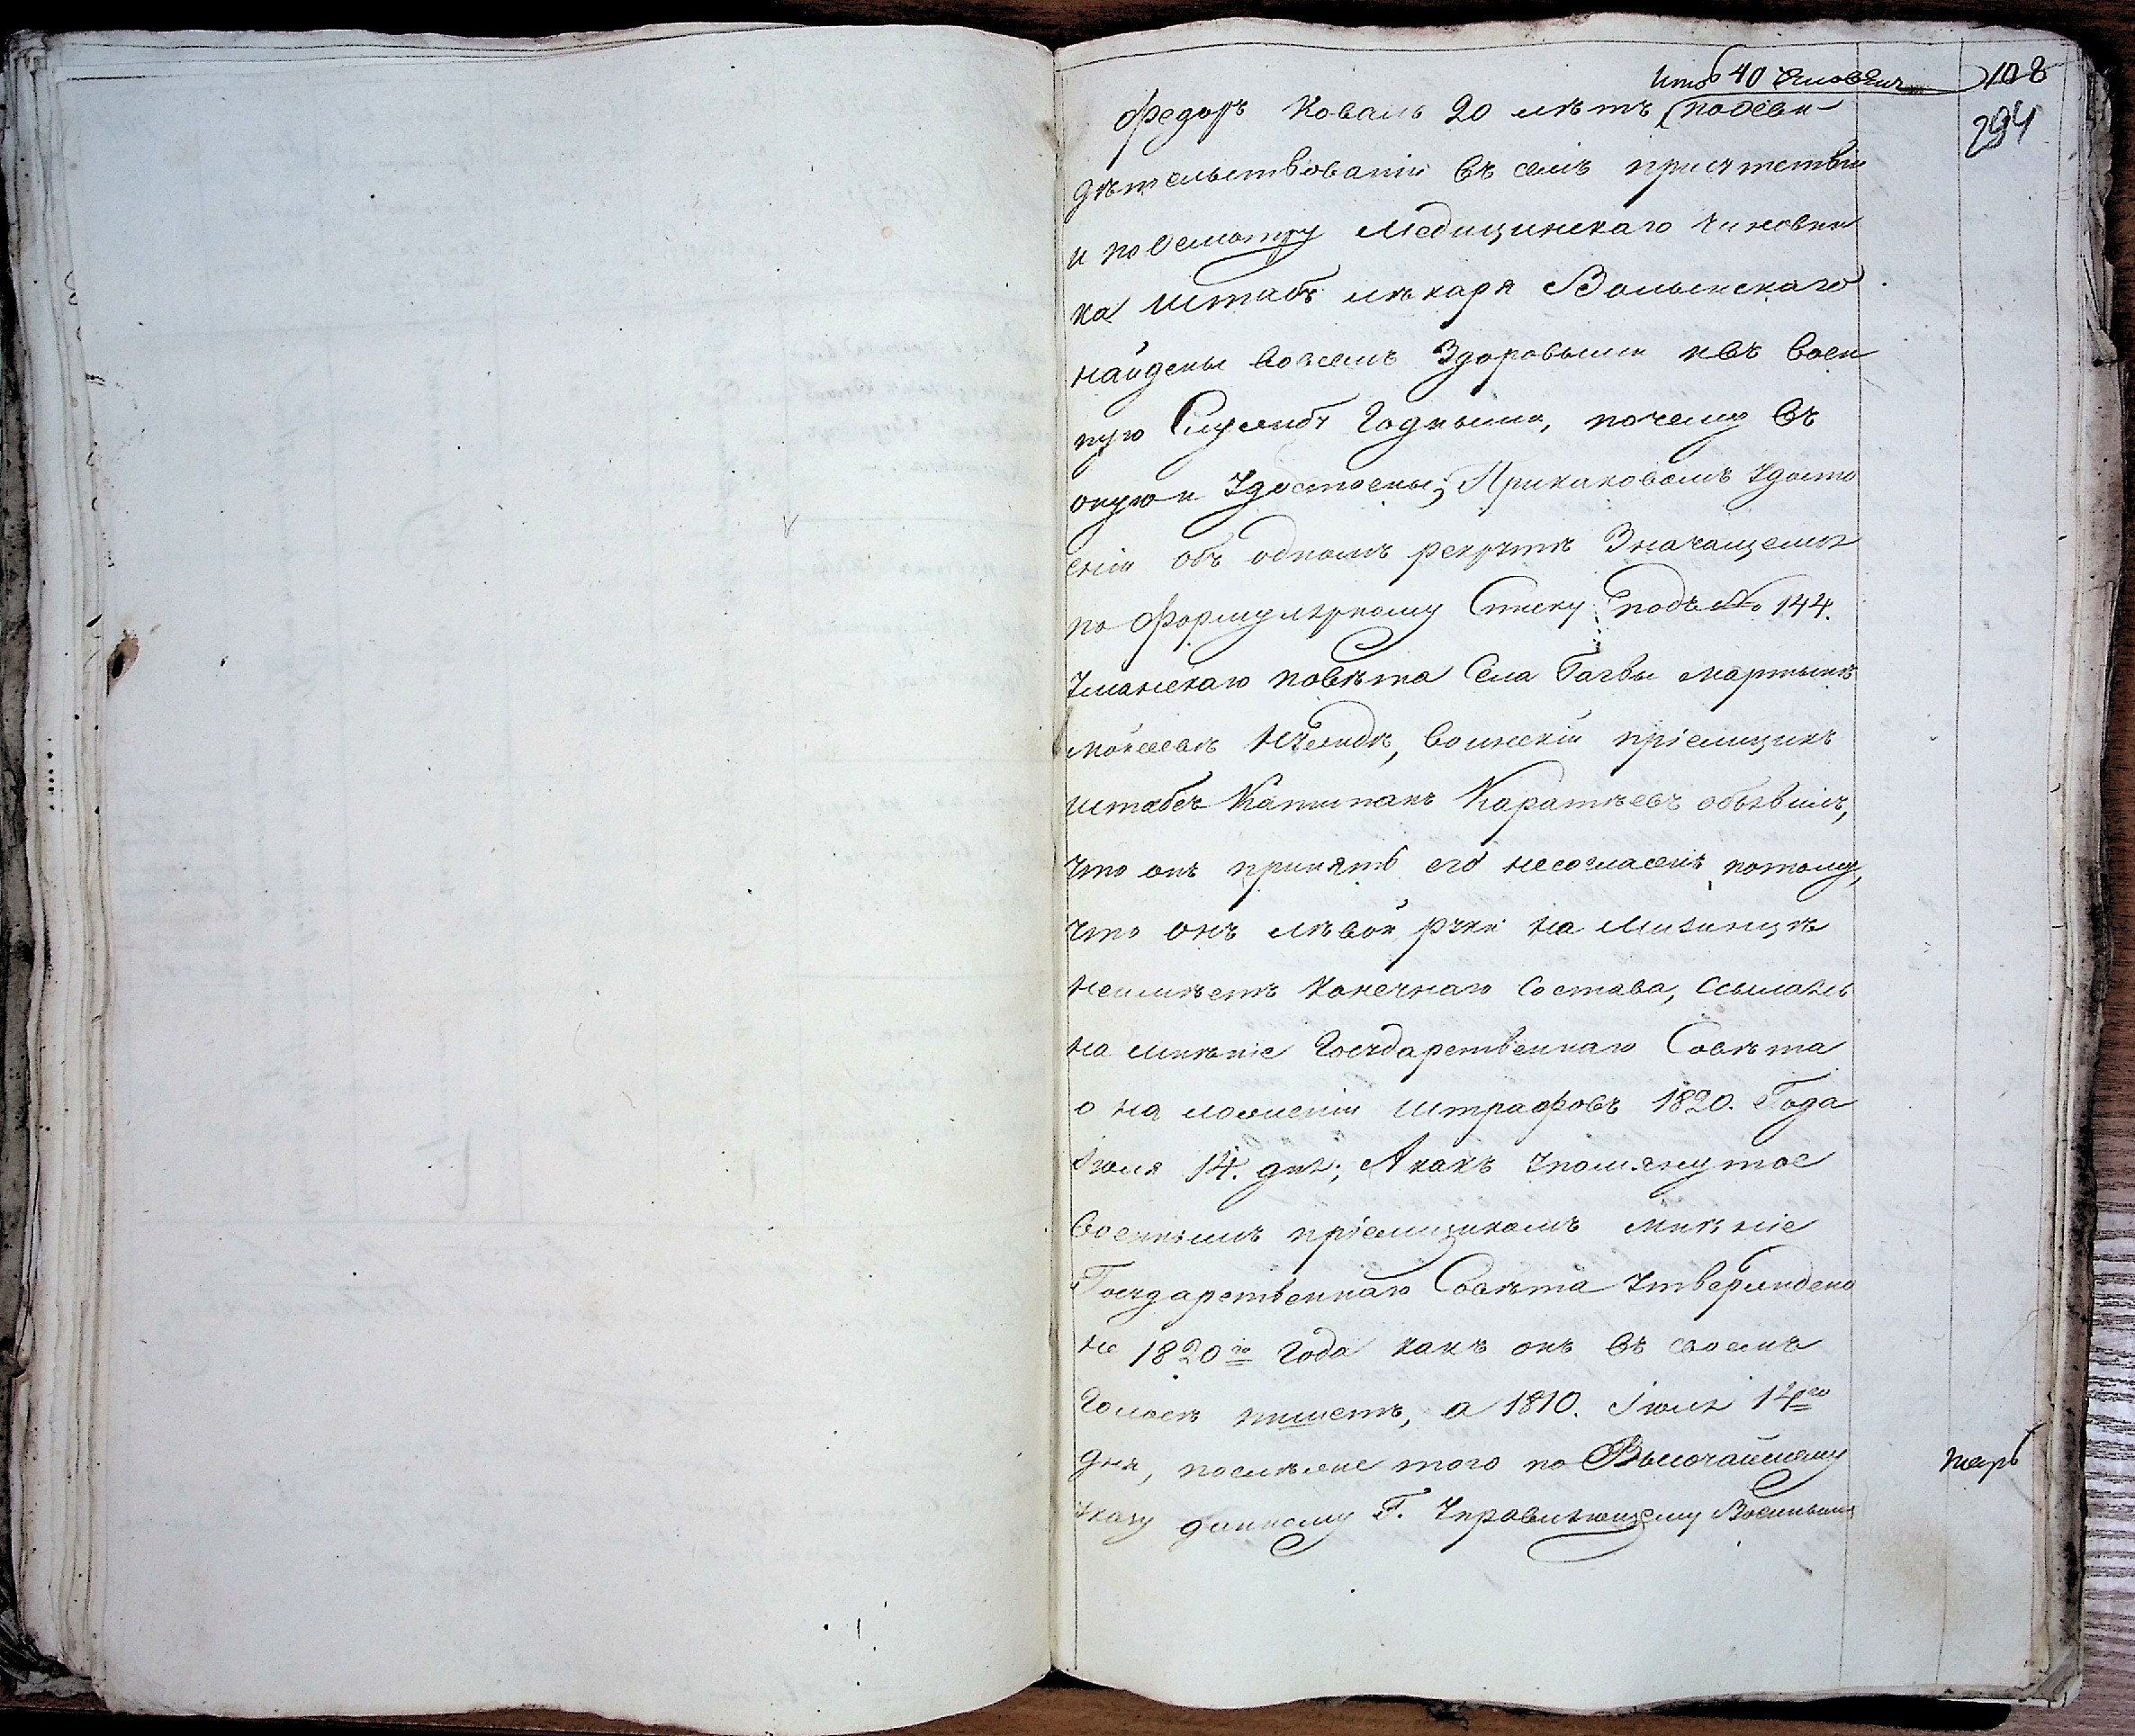 итого 40 человек 108
294
Федоръ Коваль 20 лѣтъ, по осви
дѣтельствованіи въ семъ присутствіи
и по осмотру Медицинскаго Чиновни
ка Штабъ лѣкаря Волынскаго
найдены вовсемъ Здоровыми и въ воен
ную Службу Годными, почему въ
оную и Удостоены; При каковомъ Удосто
еніи объ одномъ рекрутѣ Значащемся
по формулярному Списку подъ № 144.
Уманскаго повѣта Села мартынѣ
воинскій пріемщикъ
штабсъ Капитанъ Каратѣевъ объявилъ,
что онъ принять его несогласенъ потому,
что онъ лѣвой руки на Мизинцѣ
неимѣетъ Конечнаго Состава, Ссылаясь
на мнѣніе Государственнаго Совѣта
о наложеніи штрафовъ 1820. Года
Іюля 14. дня; А какъ упомянутое
Военнымъ пріемщикомъ мнѣніе
Государственнаго Совѣта Утверждено
не 1820го Года какъ онъ въ своемъ
Голосѣ пишетъ, а 1810. Іюля 14го
дня, послѣже того по Высочайшему
Указу данному Г. Управляющему Военнымъ